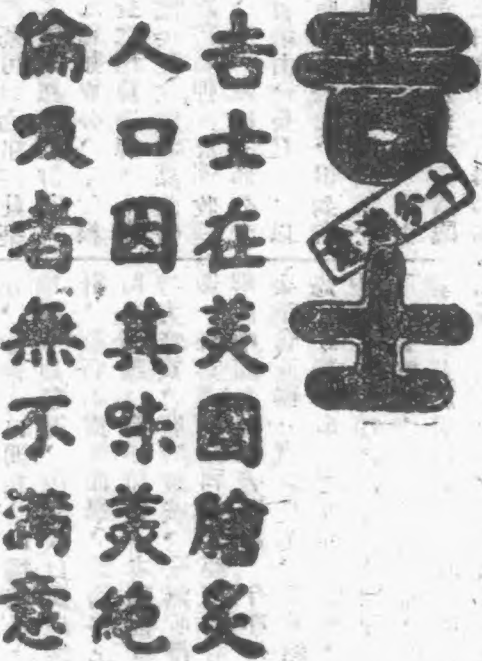 吉士
十分
吉士在美國膾炙
人口因其味美絕
倫吸者無不滿意